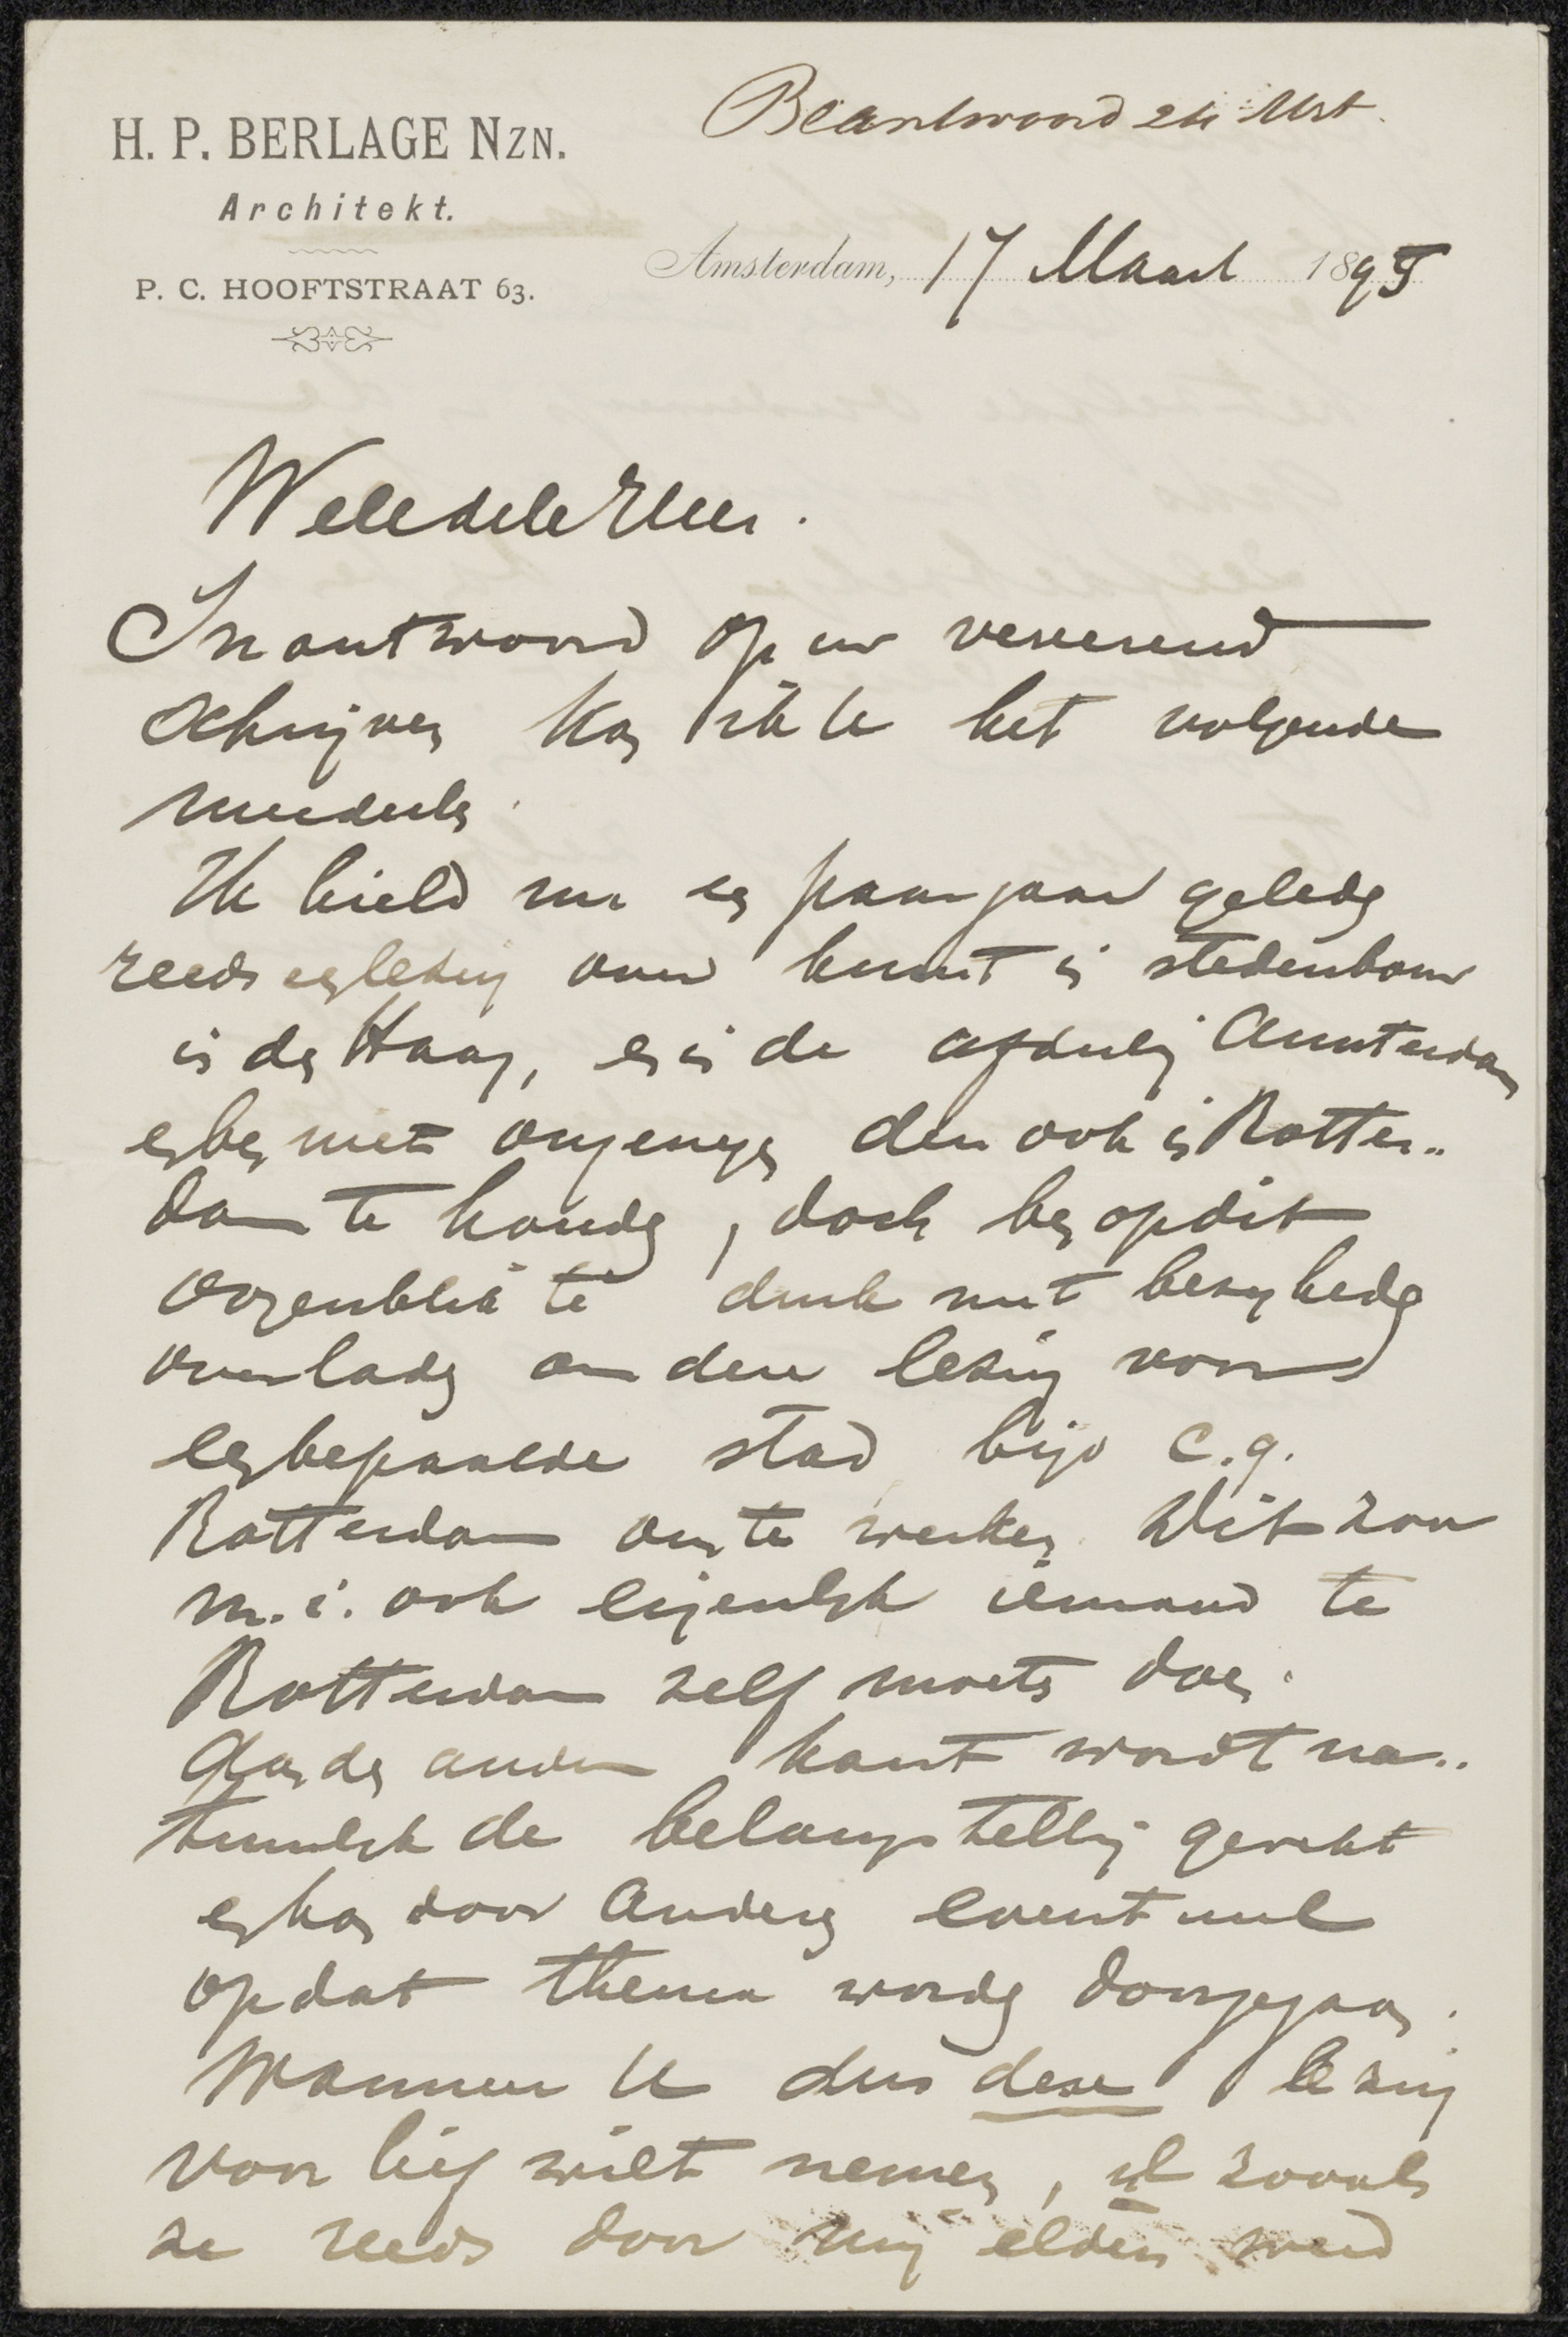 H. P. BERLAGE NZN.
Architekt.
P. C. HOOFTSTRAAT 63.
Beantwoord 24 Mrt.
Amsterdam, 17 Maart 1895
Weledele Heer.
In antwoord op uw vererend
schrijven kan ik U het volgende
mededeelen.
Ik hield nu een paar jaar geleden
reeds een lezing over kunst in stedenbouw
in den Haag, en in de afdeeling Amsterdam
en ben niet ongenegen deze ook in Rotter-
dam te houden, doch ben op dit
oogenblik te druk met bezigheden
overladen om deze lezing voor
een bepaalde stad bijv c.q.
Rotterdam om te werken. Dit zou
m.i. ook eigenlijk iemand te
Rotterdam zelf moeten doen.
Aan den anderen kant wordt na-
tuurlijk de belangstelling gewekt
en kan door anderen eventueel
op dat thema worden doorgegaan.
Wanneer U dus deze lezing
voor lief wilt nemen, zooals
ze reeds door mij elders werd